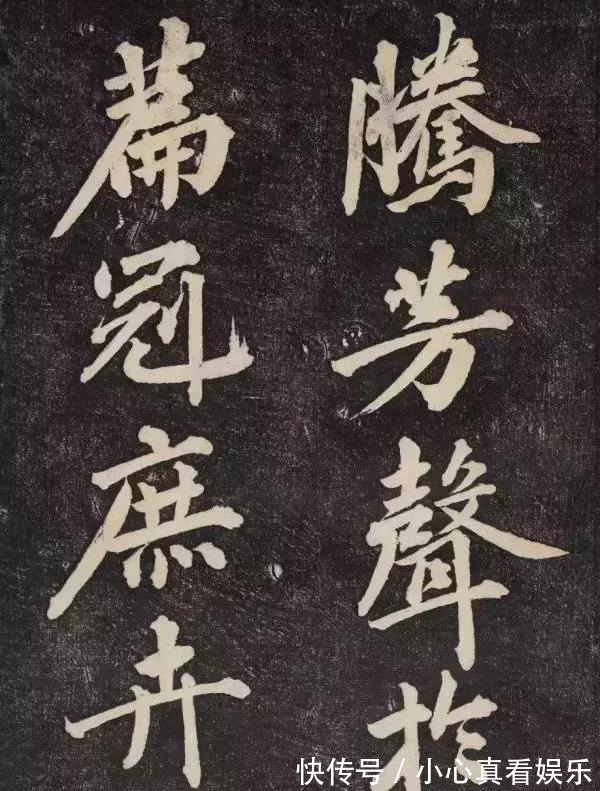 騰芳聲於
篇冠庶卉
快传号 / 小心真看娱乐